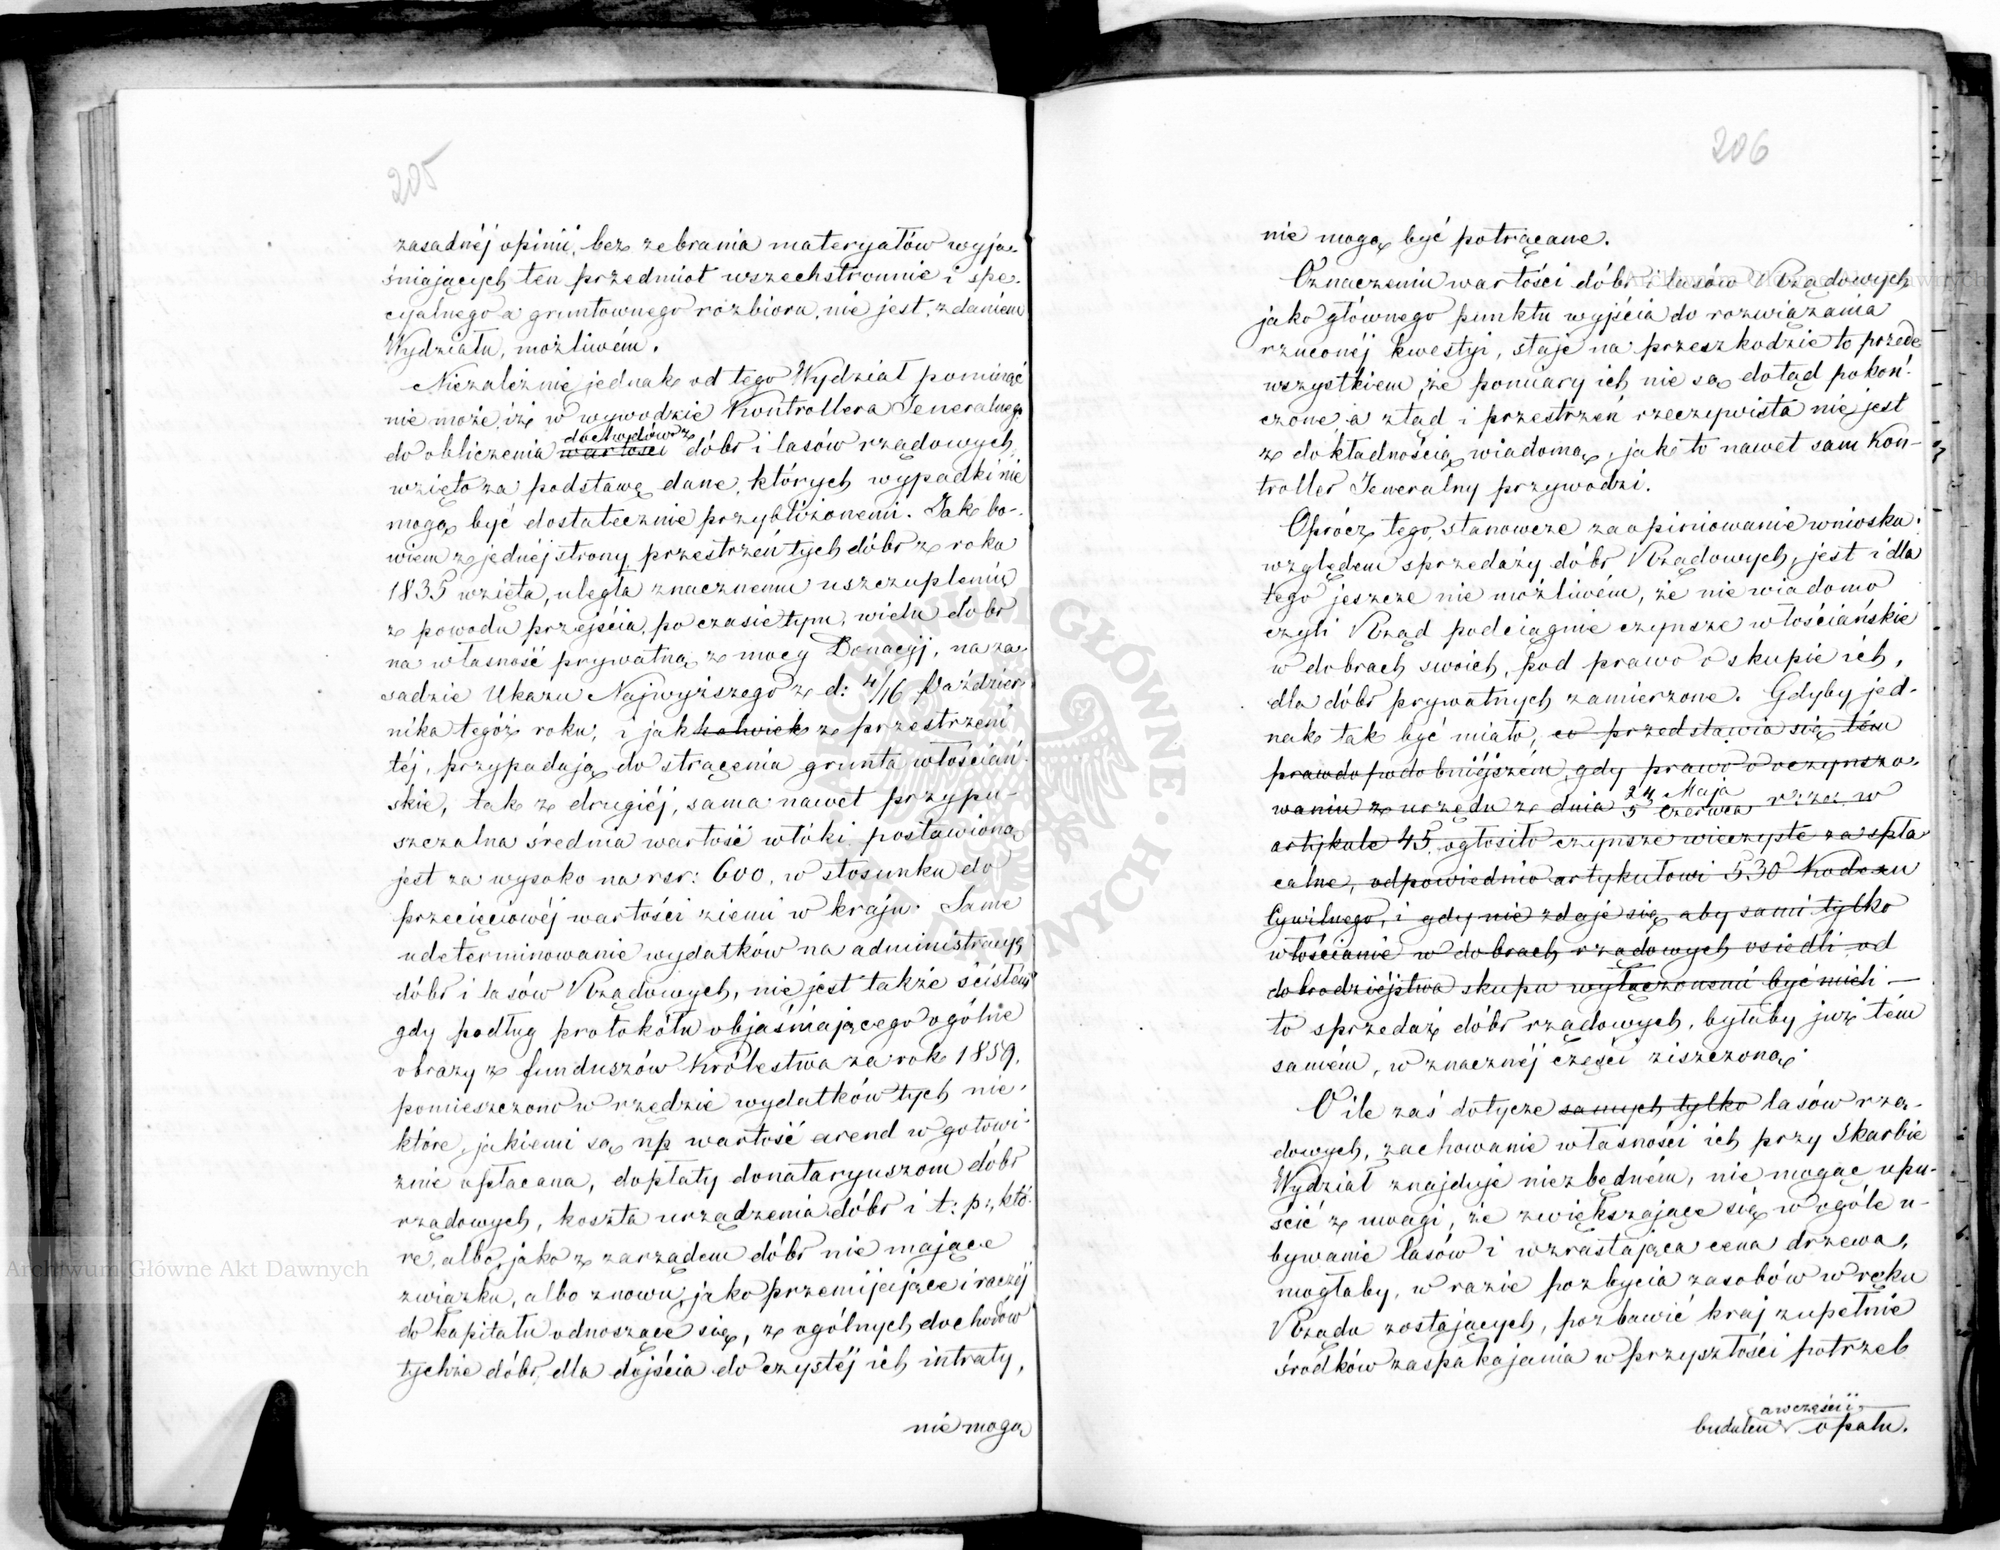 205
zasadnéj opinii, bez zebrania materyałów wyja-
śniających ten przedmiot wszechstronnie i spe-
cyalnego a gruntownego rozbioru, nie jest, zdaniem
Wydziału, możliwém.
Niezależnie jednak od tego Wydział pominąć
nie może, iż w wywodzie Kontrollera Jeneralnego
do obliczenia wartości dochodów z dóbr i lasów rządowych,
wzięto za podstawę dane, których wypadki nie
mogą być dostatecznie przybliżonemi. Jak bo-
wiem z jednéj strony przestrzeń tych dóbr z roku
1835 wzięta, uległa znacznemu uszczupleniu
z powodu przejścia, po czasie tym, wielu dóbr
na własność prywatną z mocy Donacyj, na za-
sadzie Ukazu Najwyższego z d: 4/16 Paździer-
nika tegóż roku, i jakkolwiek z przestrzeni
téj, przypadają do strącenia grunta włościań-
skie, tak z drugiéj, sama nawet przypu-
szczalna średnia wartość włóki postawioną
jest za wysoko na rsr: 600, w stosunku do
przecięciowéj wartości ziemi w kraju. Same
udeterminowanie wydatków na administracyą
dóbr i lasów Rządowych, nie jest także ścisłém
gdy podług protokółu objaśniającego ogólne
obrazy z funduszów Królestwa za rok 1859,
pomieszczono w rzędzie wydatków tych nie-
które, jakiemi są np wartość arend w gotowi-
znie opłacana, dopłaty donataryuszom dóbr
rządowych, koszta urządzenia dóbr i t: p:, któ-
re, albo jako z zarządem dóbr nie mające
związku, albo znowu jako przemijające i raczéj
do kapitału odnoszące się, z ogólnych dochodów
tychże dóbr, dla dojścia do czystéj ich intraty,
nie mogą
206
nie mogą być potrącane.
Oznaczeniu wartości dóbr i lasów Rządowych
jako głównego punktu wyjścia do rozwiązania
rzuconéj kwestyi, staje na przeszkodzie to przede
wszystkiem, że pomiary ich nie są dotąd pokoń-
czone, a ztąd i przestrzeń rzeczywista nie jest
z dokładnością wiadomą, jak to nawet sam Kon-
troller Jeneralny przywodzi.
Oprócz tego, stanowcze zaopiniowanie wniosku
względem sprzedaży dóbr Rządowych, jest i dla
tego jeszcze nie możliwém, że nie wiadomo
czyli Rząd podciągnie czynsze włościańskie
w dobrach swoich, pod prawo o skupie ich,
dla dóbr prywatnych zamierzone. Gdyby jed-
nak tak być miało, co przedstawia się tém
prawdopodobniéjszém, gdy prawo o oczynszo-
waniu z urzędu z dnia 24 Maja / 5 Czerwca r: z: w
artykule 45, ogłosiło czynsze wieczyste za spła-
calne, odpowiednio artykułowi 530 Kodexu
Cywilnego, i gdy nie zdaje się, aby sami tylko
włościanie w dobrach rządowych osiedli od
dobrodziéjstwa skupu wyłączonemi być mieli –
to sprzedaż dóbr rządowych, byłaby już tém
samém, w znacznéj części ziszczoną.
O ile zaś dotycze samych tylko lasów rzą-
dowych, zachowanie własności ich przy Skarbie
Wydział znajduje niezbędném, nie mogąc opu-
ścić z uwagi, że zwiększające się w ogóle u-
bywanie lasów i wzrastająca cena drzewa,
mogłaby, w razie pozbycia zasobów w ręku
Rządu zostających, pozbawić kraj zupełnie
środków zaspakajania w przyszłości potrzeb
budulcu a w części i opału.
Archiwum Główne Akt Dawnych
Archiwum Główne Akt Dawnych
ARCHIWUM GŁÓWNE AKT DAWNYCH